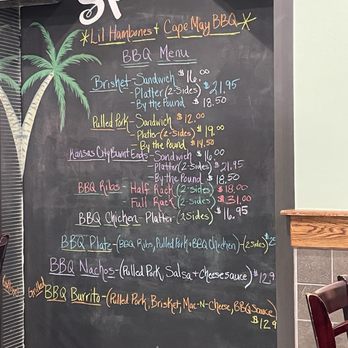 SP
*Lil Hambones + Cape May BBQ*
BBQ Menu
Brisket-Sandwich $16.00
-Platter (2-Sides) $21.95
-By the Pound $18.50
Pulled Pork-Sandwich $12.00
-Platter (2-Sides) $19.00
-By the Pound $14.50
Kansas City Burnt Ends-Sandwich $16.00
-Platter (2-Sides) $21.95
-By the Pound $18.50
BBQ Ribs-Half Rack (2-Sides) $18.00
Full Rack (2-Sides) $31.00
BBQ Chicken-Platter (2 Sides) $16.95
BBQ Plate-(BBQ Ribs, Pulled Pork + BBQ Chicken)-(2 Sides) $2
BBQ Nachos-(Pulled Pork, Salsa + Cheese sauce) $12.9
Grilled BBQ Burrito-(Pulled Pork, Brisket, Mac-N-Cheese, BBQ Sauce)
$12.9